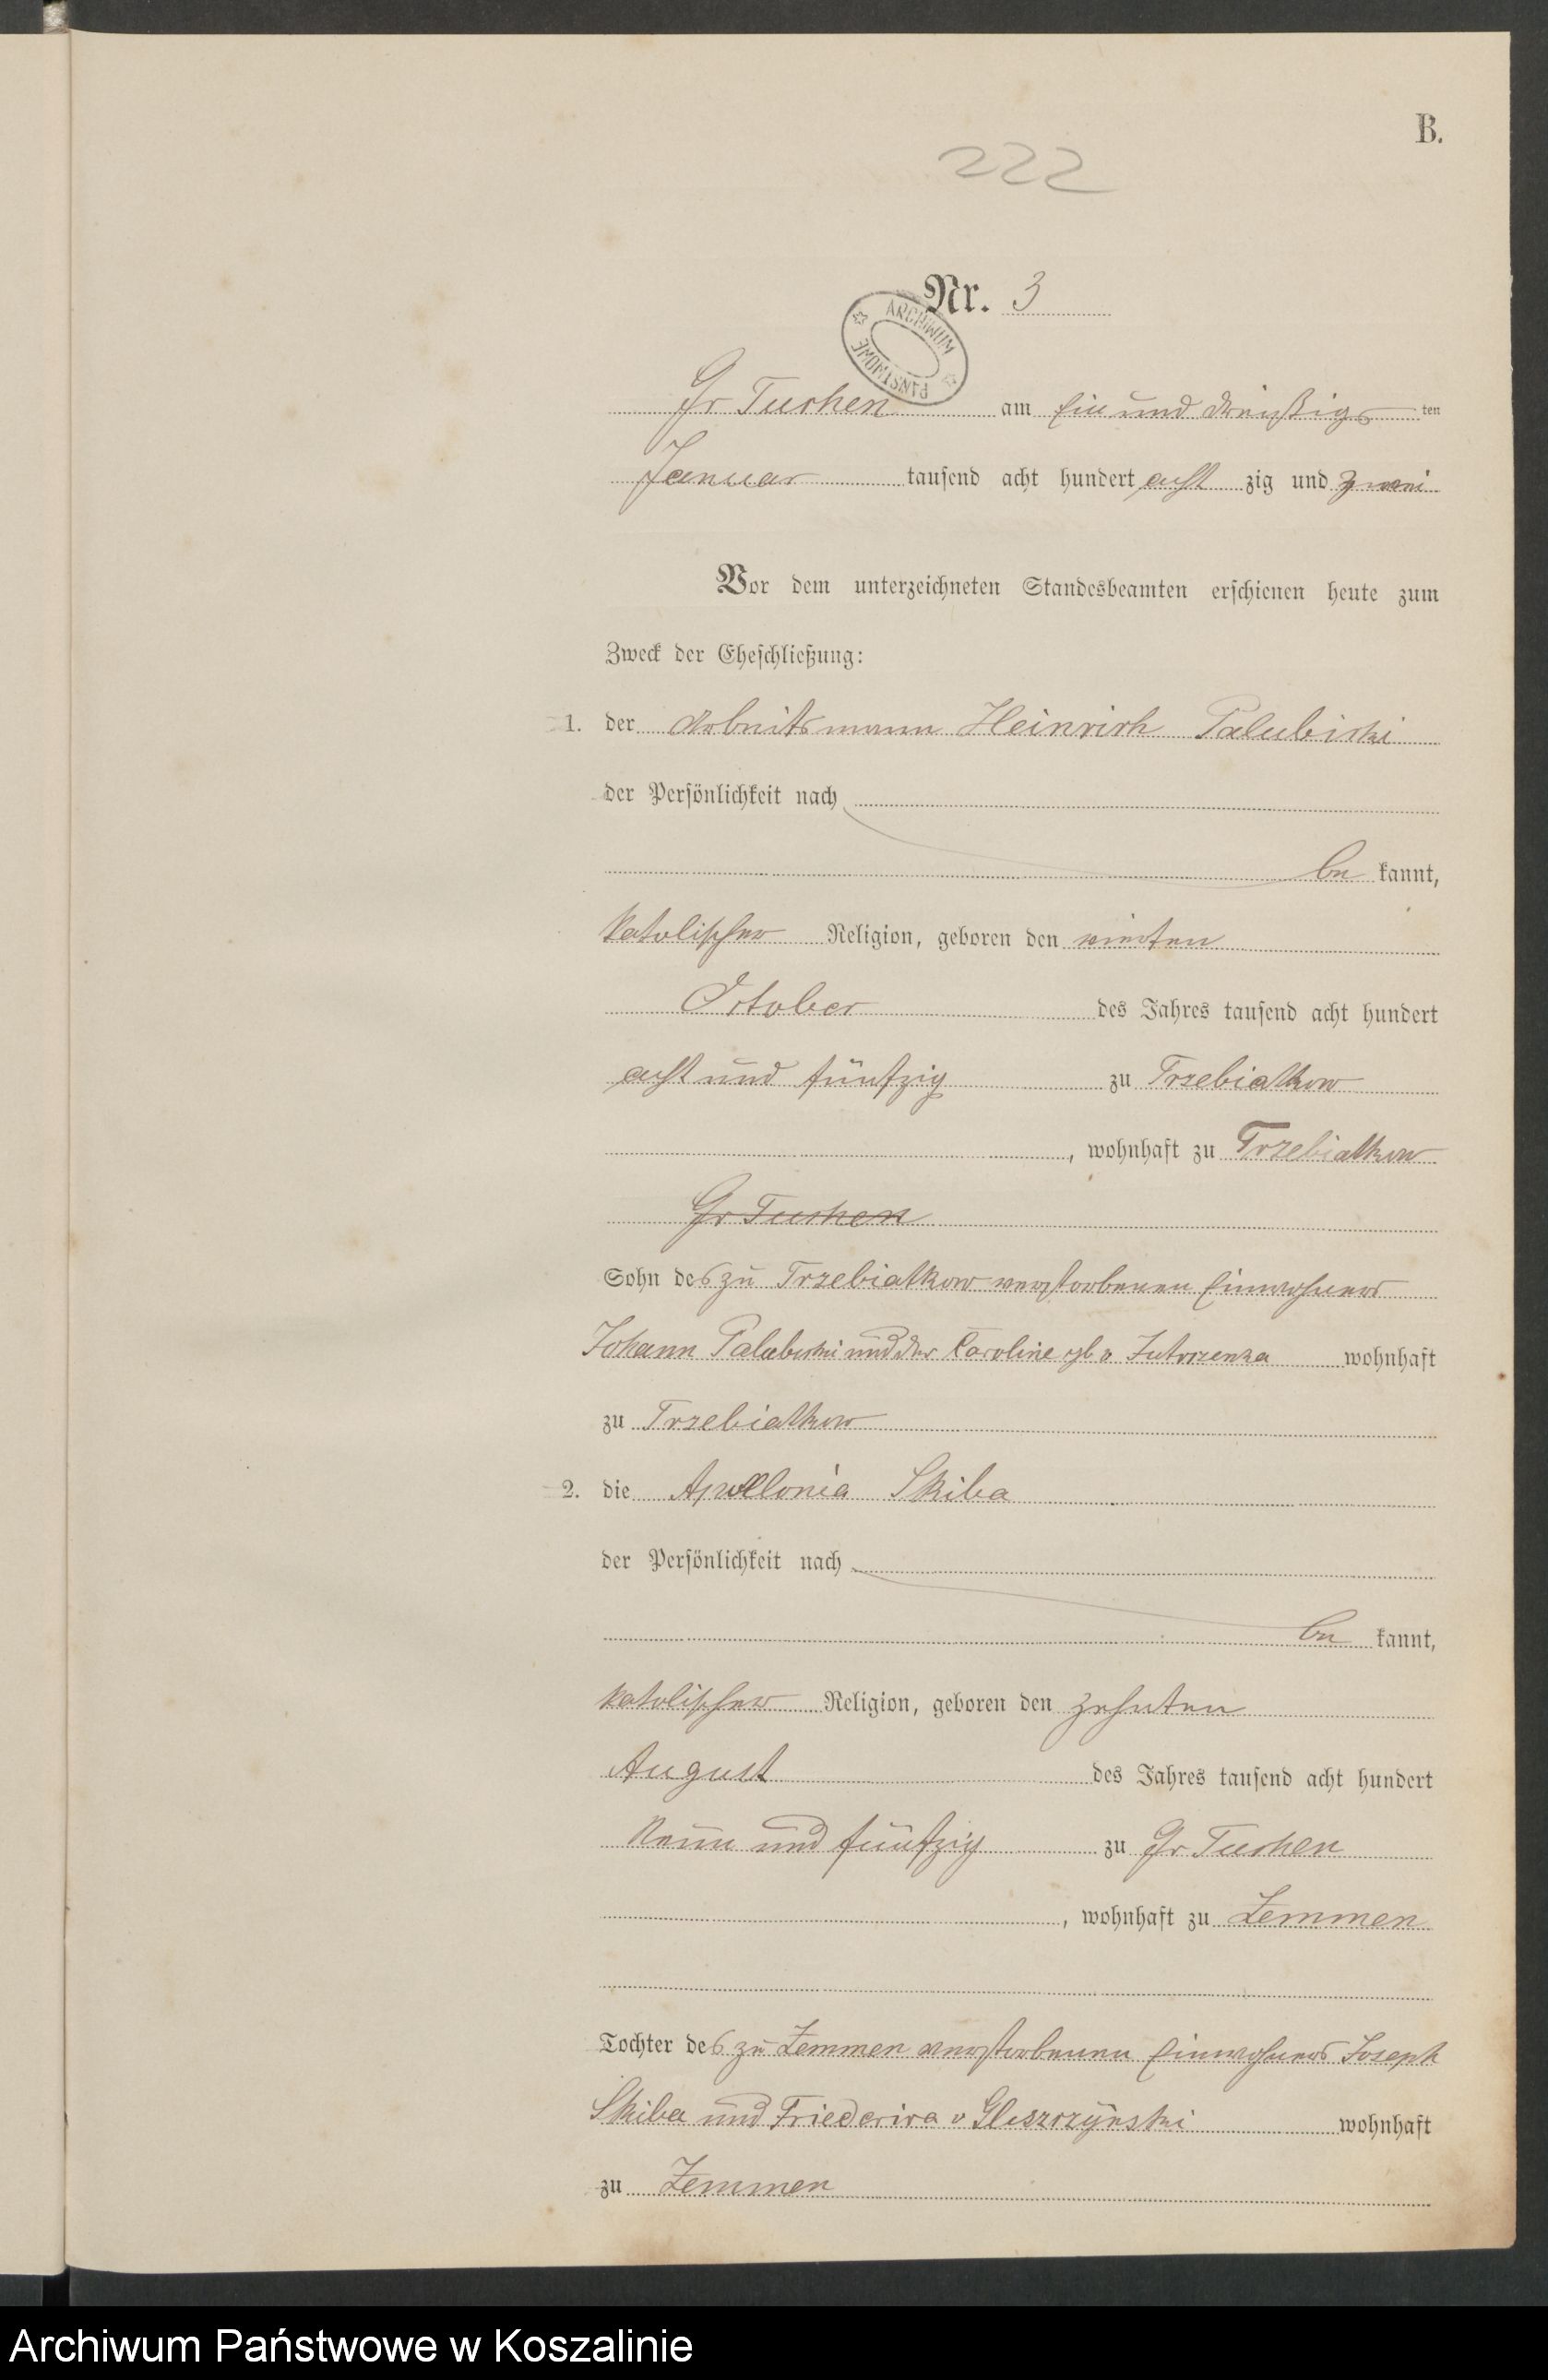 B.
222
Nr. 3
ARCHIWUM PAŃSTWOWE
Gr Tuchen am ein und dreißigsten
Januar tausend acht hundert acht zig und zwei
Vor dem unterzeichneten Standesbeamten erschienen heute zum
Zweck der Eheschließung:
1. der Arbeitsmann Heinrich Palubicki
der Persönlichkeit nach
be kannt,
katolischer Religion, geboren den vierten
October des Jahres tausend acht hundert
acht und fünfzig zu Trzebiatkow
, wohnhaft zu Trzebiatkow
Gr Tuchen
Sohn des zu Trzebiatkow verstorbenen Einwohners
Johann Palubicki und der Caroline gb v Jutrzenka wohnhaft
zu Trzebiatkow
2. die Apollonia Skiba
der Persönlichkeit nach
be kannt,
katolischer Religion, geboren den zehnten
August des Jahres tausend acht hundert
neun und fünfzig zu Gr Tuchen
, wohnhaft zu Zemmen
Tochter des zu Zemmen verstorbenen Einwohners Joseph
Skiba und Friederica v Gliszczynski wohnhaft
zu Zemmen
Archiwum Państwowe w Koszalinie